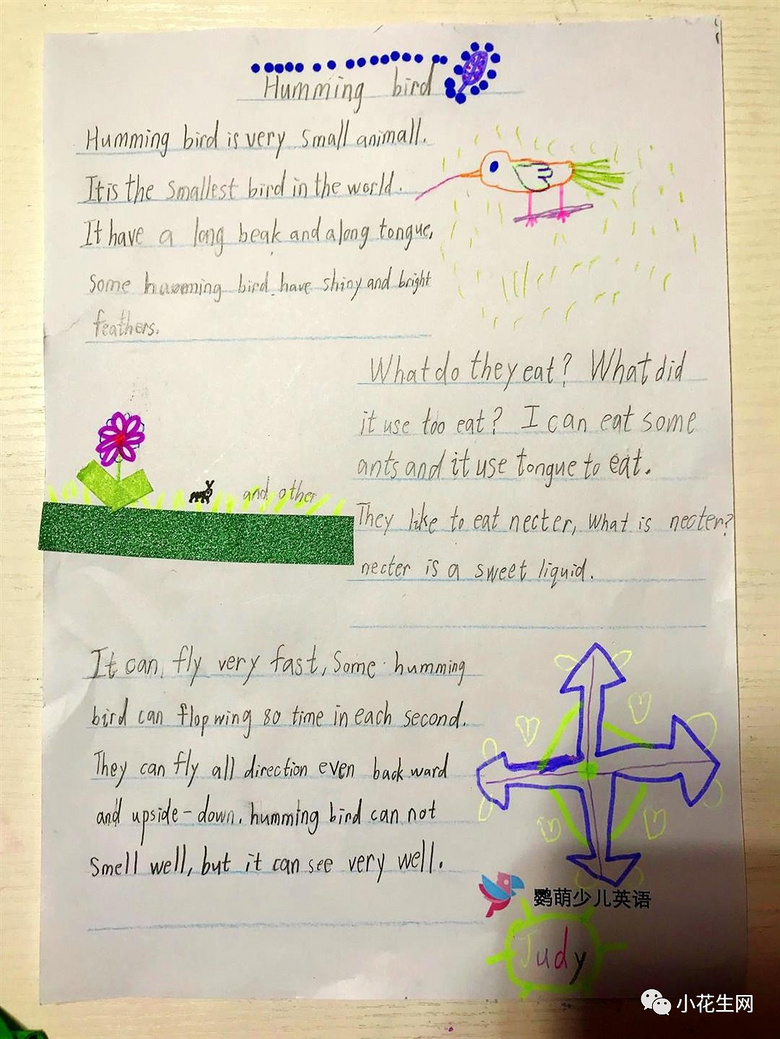 Humming bird
Humming bird is very small animall.
It is the smallest bird in the world.
It have a long beak and a long tongue,
some humming bird have shiny and bright
feathers.
What do they eat? What did
it use too eat? I can eat some
ants and it use tongue to eat.
and other
They like to eat necter, what is necter?
necter is a sweet liquid.
It can fly very fast, Some humming
bird can flop wing 80 time in each second.
They can fly all direction even back ward
and upside-down. humming bird can not
Smell well, but it can see very well.
鹦萌少儿英语
Judy
小花生网